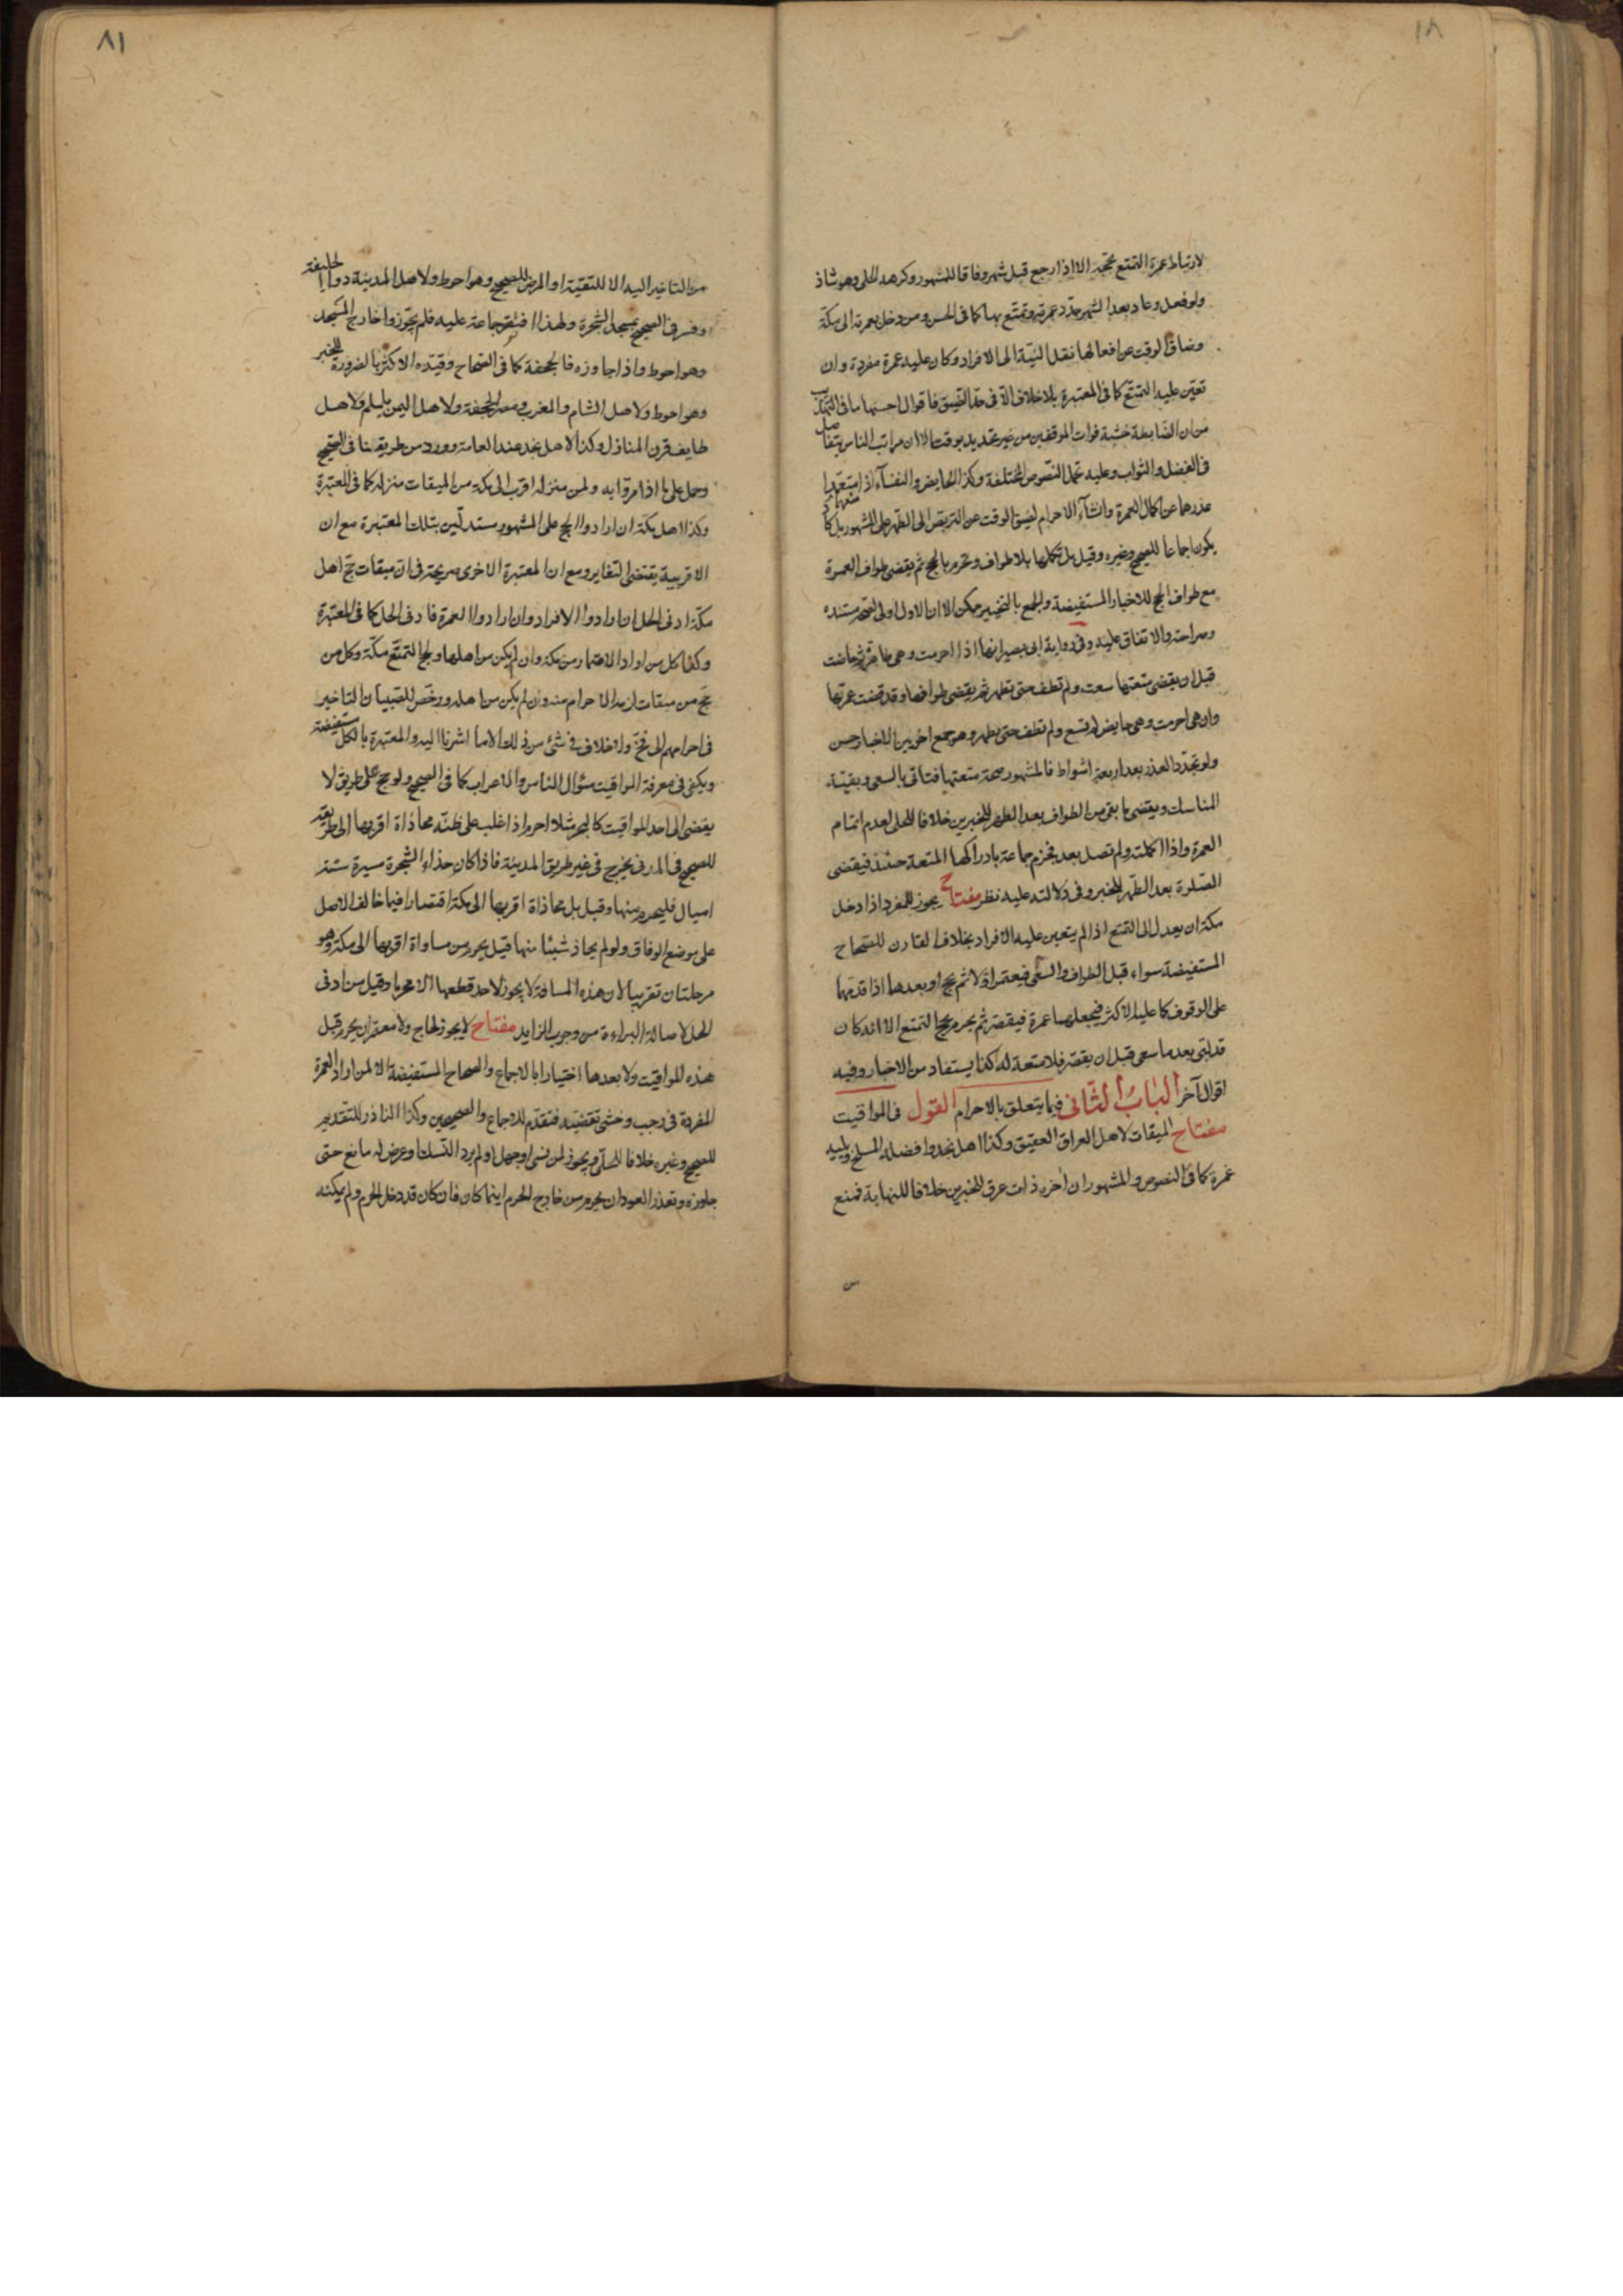 ١٨
لارتباط عمرة التمتع بحجه الا اذا رجع قبل شهر وفاقا للمشهور وكرهه الحلي وهو شاذ
ولو فعل وعاد بعد الشهر جدد عمرة وتمتع بها كما في الحسن ومن دخل بعمرته الى مكة
وضاق الوقت عن افعالها نقل النية الى الافراد وكان عليه عمرة مفردة وان
تعين عليه التمتع كما في المعتبرة بلا خلاف الا في حد التضيق فاقوال احسنها ما في التهذيب
من ان الضابطة خشية فوات الموقفين من غير تحديد بوقت الا ان مراتب الناس يتفاضل
في الفضل والثواب وعليه تحمل النصوص المختلفة وكذا الحايض والنفسآء اذ استعهدا
عذرهما عن اكمال العمرة وانشآء الاحرام لضيق الوقت عن التربص الى الطهر على المشهور بل كاد
يكون اجماعا للصحيح وغيره وقيل بل تكملها بلا طواف وتحرم بالحج ثم يقضى طواف العمرة
مع طواف الحج للاخبار المستفيضة والجمع بالتخيير ممكن الا ان الاول اولى لصحة مستنده
وصراحته والاتفاق عليه وفي رواية ابي بصير انها اذا احرمت وهي طاهر ثم حاضت
قبل ان يقضى متعتها سعت ولم تطف حتى تطهر ثم يقضى طوافها وقد قضت عمرتها
وان هي احرمت وهي حايض لم تسع ولم تطف حتى تطهر وهو جمع اخر بين الاخبار حسن
ولو تجدد العذر بعد اربعة اشواط فالمشهور صحة متعتها فتاتى بالسعى وبقية
المناسك ويقضى ما بقى من الطواف بعد الطهر للخبرين خلافا للحلى لعدم اتمام
العمرة واذا اكملته ولم تصل بعد فجزم جماعة بادراكها المتعة حينئذ فيقضى
الصلوة بعد الطهر للخبر وفى دلالته عليه نظر مفتاح يجوز للمفرد اذا دخل
مكة ان يعدل الى التمتع اذا لم يتعين عليه الافراد بخلاف القارن للصحاح
المستفيضة سواء قبل الطواف والسعى فيعتمر اولا ثم يحج او بعدهما اذا قدمهما
على الوقوف كما عليه الاكثر فيجعلهما عمرة فيقصر ثم يحرم بحج التمتع الا انه كان
قد لبى بعد ما سعى قبل ان يقصر فلا متعة له كذا يستفاد من الاخبار وفيه
اقوال آخر الباب الثاني فيما يتعلق بالاحرام القول في المواقيت
مفتاح الميقات لاهل العراق العقيق وكذا اهل نجد وافضله المسلخ ويليه
غمرة كما في النصوص والمشهور ان اخره ذات عرق للخبرين خلافا للنهاية فمنع
من
٨١
من التاخير اليه الا للتقية او المرض للصحيح وهو احوط ولاهل المدينة ذو الحليفة
وفسر في الصحيح بمسجد الشجرة ولهذا اقتصر جماعة عليه فلم يجوزوا خارج المسجد
وهو احوط واذا جاوزه فالجحفة كما في الصحاح وقيده الاكثر بالضرورة للخبر
وهو احوط ولاهل الشام والمغرب ومصر الجحفة ولاهل اليمن يلملم ولاهل
طايف قرن المنازل وكذا لاهل نجد عند العامة وورد من طريقنا في الصحيح
وحمل على ما اذا مروا به ولمن منزله اقرب الى مكة من الميقات منزله كما في المعتبرة
وكذا اهل مكة ان ارادوا الحج على المشهور مستدلين بتلك المعتبرة مع ان
الاقربية يقتضى التغاير ومع ان المعتبرة الاخرى صريحة في ان ميقات حج اهل
مكة ادنى الحل ان ارادوا الافراد وان ارادوا العمرة فادنى الحل كما في المعتبرة
وكذا كل من اراد الاعتمار من مكة وان لم يكن من اهلها ولحج التمتع مكة وكل من
حج من ميقات لزمه الاحرام منه وان لم يكن من اهله ورخص للصبيان التاخير
في احرامهم الى فخ ولا خلاف في شئ من ذلك الا ما اشرنا اليه والمعتبرة بالكل مستفيضة
ويكفى في معرفة المواقيت سئوال الناس والاعراب كما في الصحيح ولو حج على طريق لا
يفضى الى احد المواقيت كالبحر مثلا احرم اذا غلب على ظنه محاذاة اقربها الى طريقه
للصحيح في المدنى يخرج في غير طريق المدينة فاذا كان حذاء الشجرة مسيرة ستة
اميال فليحرم منها وقيل بل محاذاة اقربها الى مكة اقتصارا فيما خالف الاصل
على موضع الوفاق ولو لم يحاذ شيئا منها قيل يحرم من مساواة اقربها الى مكة وهو
مرحلتان تقريبا لان هذه المسافة لا يجوز لاحد قطعها الا محرما وقيل من ادنى
الحل لاصالة البراءة من وجوب الزايد مفتاح لا يجوز لحاج ولا معتمر ان يحرم قبل
هذه المواقيت ولا بعدها اختيارا بالاجماع والصحاح المستفيضة الا لمن اراد العمرة
المفردة في رجب وخشى تقضيه فتقدم للاجماع والصحيحين وكذا الناذر للتقديم
للصحيح وغيره خلافا للحلى ويجوز لمن نسى او جهل او لم يرد النسك او عرض له مانع حتى
جاوزه وتعذر العود ان يحرم من خارج الحرم اينما كان فان كان قد دخل الحرم ولم يمكنه